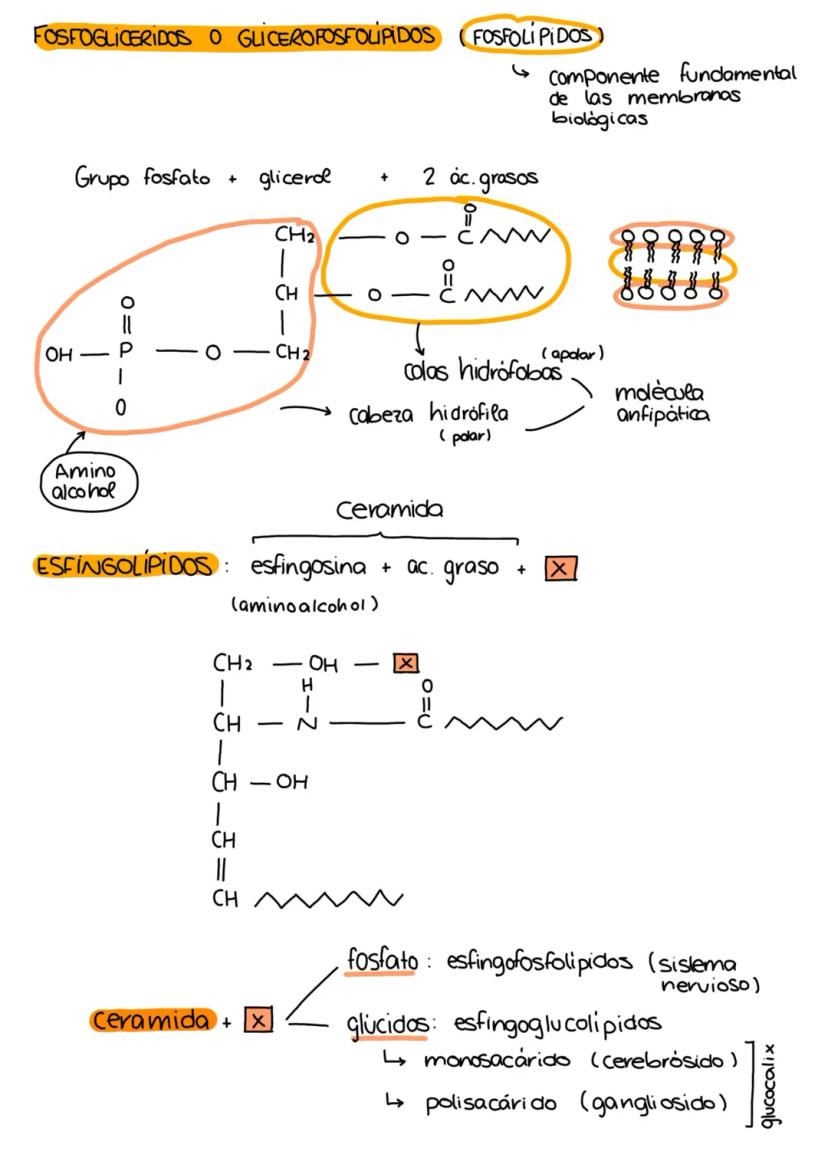 FOSFOGLICERIDOS O GLICEROFOSFOLÍPIDOS (FOSFOLÍPIDOS)
↳ componente fundamental
de las membranas
biológicas
Grupo fosfato + glicerol + 2 ác. grasos
O
CH2 — O — C
O
CH — O — C
O
OH — P — O — CH2
O
colas hidrófobas (apolar)
cabeza hidrófila
(polar)
molécula
anfipática
Amino
alcohol
Ceramida
ESFINGOLÍPIDOS: esfingosina + ac. graso + X
(aminoalcohol)
CH2 — OH — X
H
O
CH — N — C
CH — OH
CH
CH
fosfato: esfingofosfolípidos (sistema
nervioso)
Ceramida + X
glúcidos: esfingoglucolípidos
↳ monosacárido (cerebrósido)
↳ polisacárido (gangliosido)
glucocalix